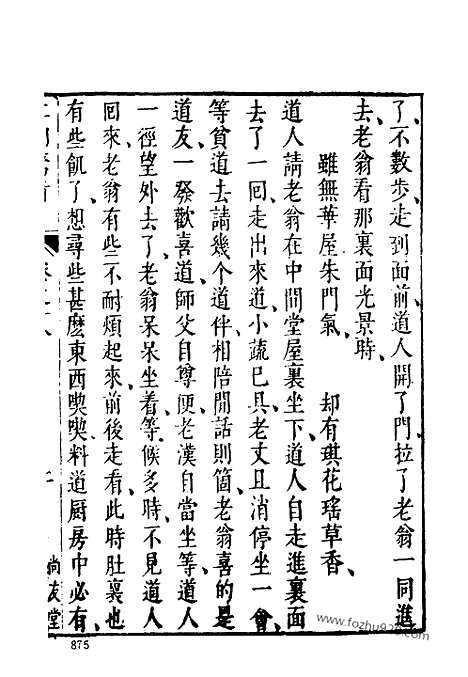 了、不數步、走到面前、道人開了門、拉了老翁一同進
去、老翁看那裏面光景時、
雖無華屋朱門氣、　却有琪花瑤草香、
道人請老翁在中間堂屋裏坐下、道人自走進裏面
去了一回、走出來道、小蔬已具、老丈且消停坐一會、
等貧道去請幾个道伴、相陪閒話則箇、老翁喜的是
道友、一發歡喜道、師父自尊便、老漢自當坐等、道人
一徑望外去了、老翁呆呆坐着、等候多時、不見道人
回來、老翁有些不耐煩起來、前後走看、此時肚裏也
有些飢了、想尋些甚麽東西喫喫、料道厨房中必有、
尚友堂
875
www.fozhu920.com